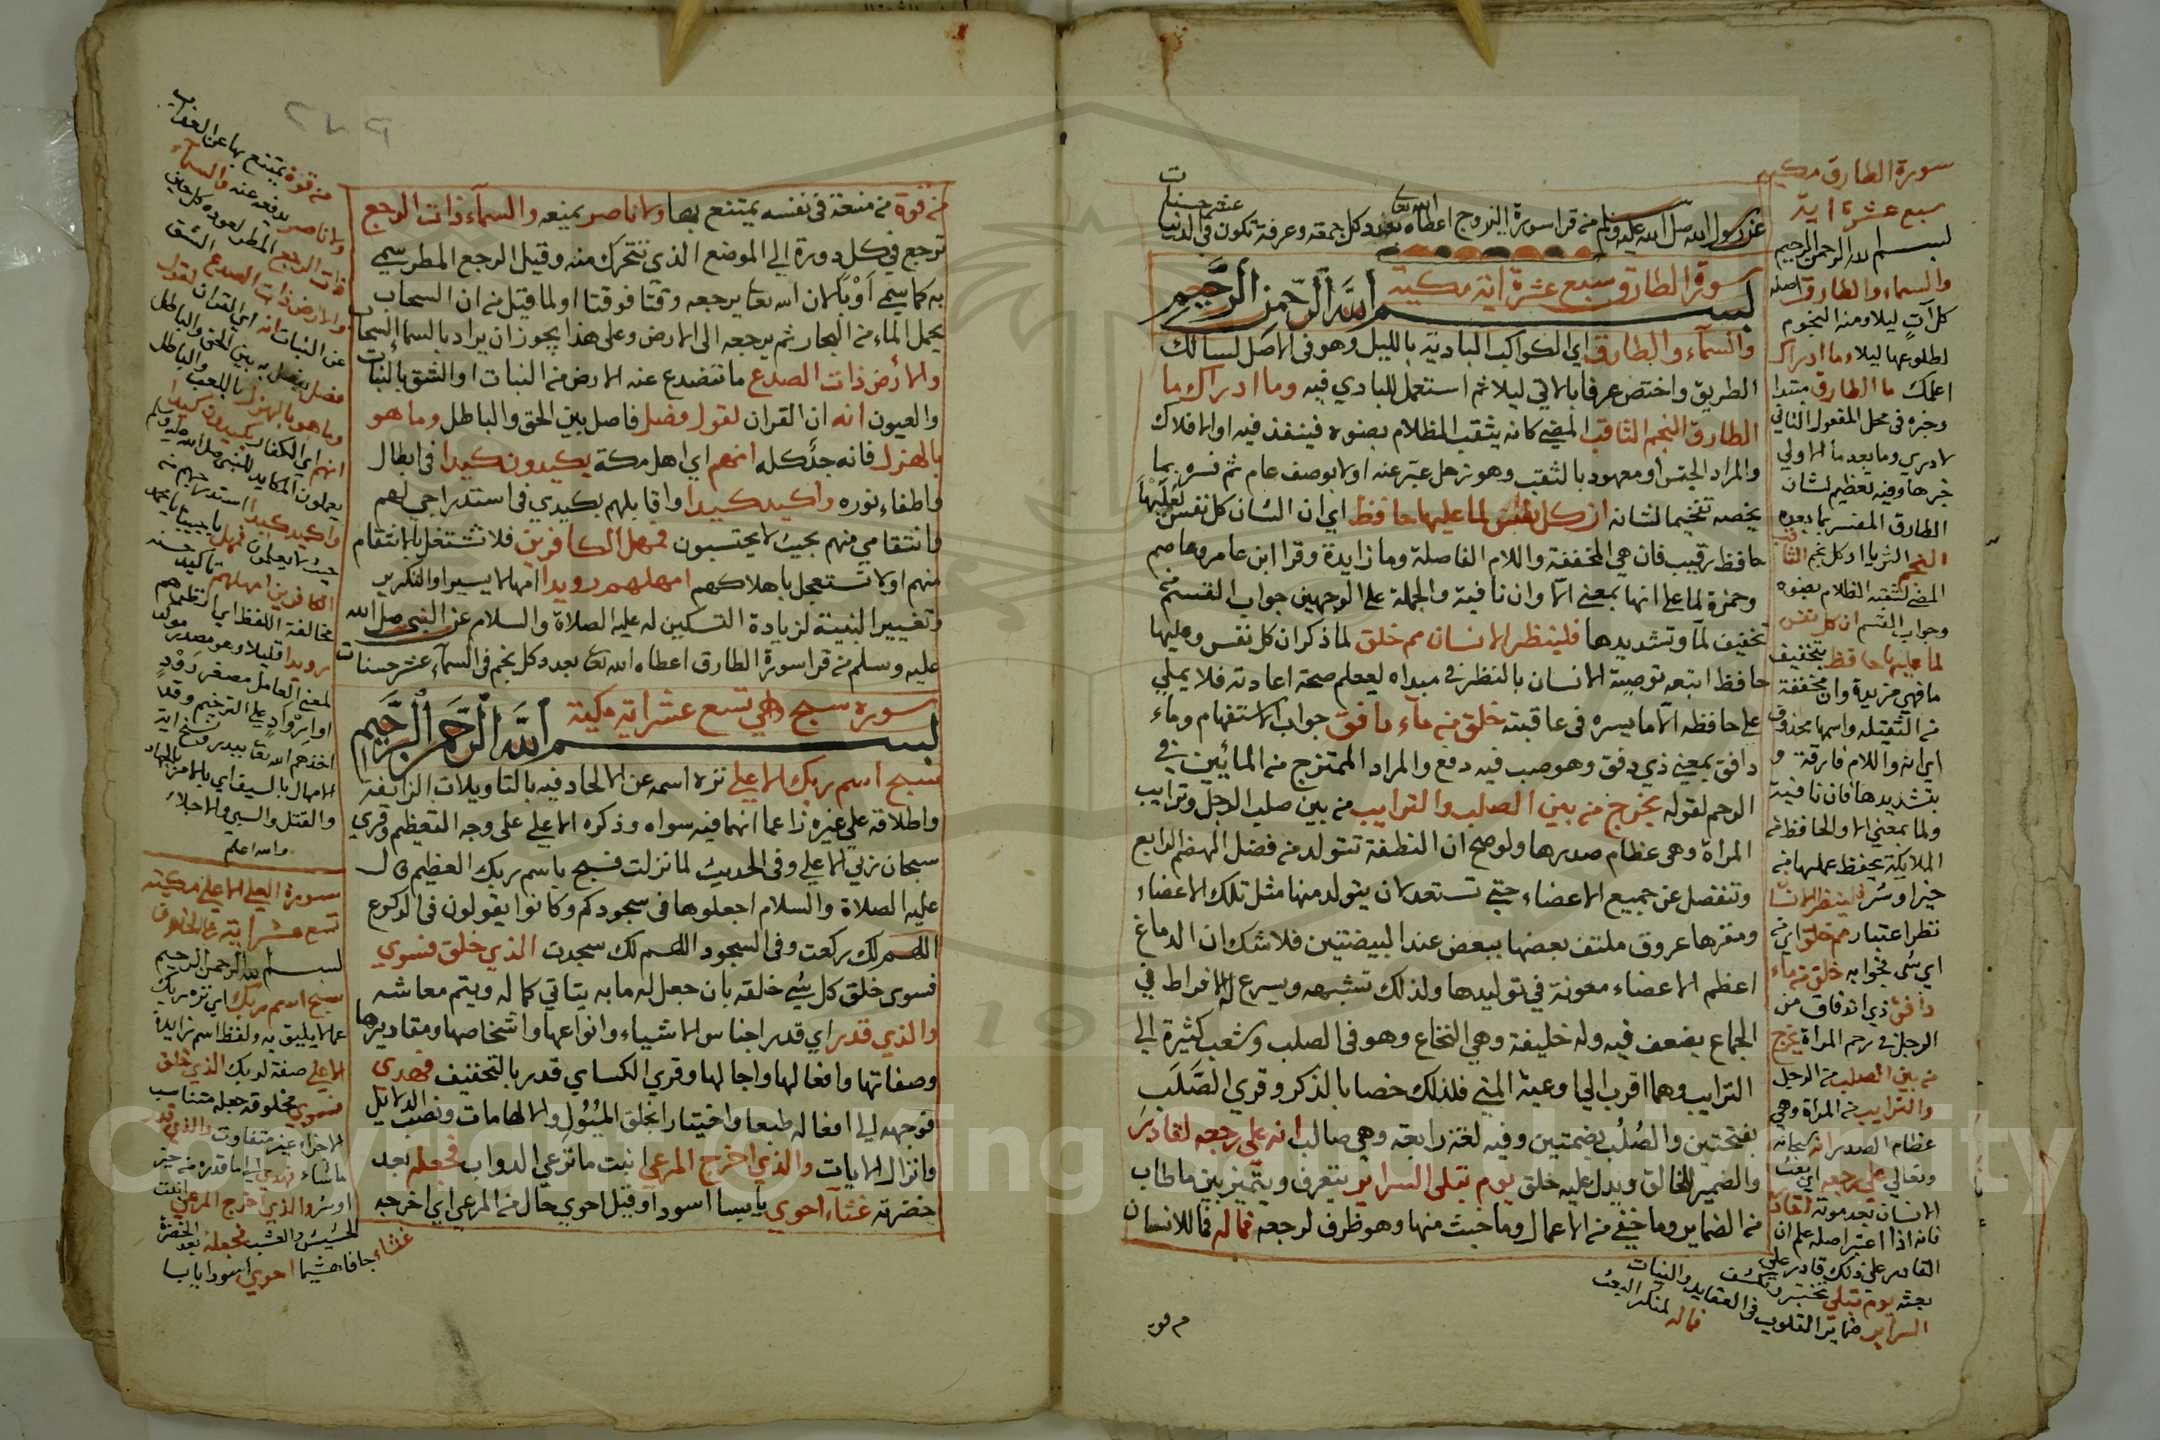 سورة الطارق مكية
سبع عشرة اية
بسم الله الرحمن الرحيم
والسماء والطارق اصله
كل آت ليلا ومنه النجوم
لطلوعها ليلا وما ادراك
اعلمك ما الطارق مبتدا
وخبره في محل المفعول الثاني
لادري وما بعد ما الاولى
خبرها وفيه تعظيم لشان
الطارق المفسر بما بعده
النجم الثريا او كل نجم الثاقب
المضي لثقبه الظلام بضوه
وجواب القسم ان كل نفس
لما عليها حافظ بتخفيف
ما فهي مزيدة وان مخففة
من الثقيلة واسمها محذوف
اي انه واللام فارقة و
بتشديدها فان نافية
ولما بمعنى الا والحافظ من
الملايكة يحفظ عملها من
خير او شر فلينظر الانسان
نظر اعتبار مم خلق اي من
اي شي فجوابه خلق من ماء
دافق ذي اندفاق من
الرجل في رحم المراة يخرج
من بين الصلب من الرجل
والترايب من المراة وهي
عظام الصدر انه سبحانه
وتعالى على رجعه اي بعث
الانسان بعد موته لقادر
فانه اذا اعتبر اصله علم ان
القادر على ذلك قادر على
بعثه يوم تبلى تختبر وتكشف
السراير ضماير القلوب في العقايد والنيات
فما له لمنكر البعث
عن رسول الله صلى الله عليه وسلم من قرا سورة البروج اعطاه الله تعالى بعدد كل جمعة وعرفة تكون في الدنيا عشر حسنات
سورة الطارق سبع عشرة اية مكية
بسم الله الرحمن الرحيم
والسماء والطارق اي الكواكب البادية بالليل وهو في الاصل لسالك
الطريق واختص عرفا بالاتي ليلا ثم استعمل للبادي فيه وما ادراك ما
الطارق النجم الثاقب المضي كانه يثقب الظلام بضوءه فينفذ فيه او الافلاك
والمراد الجنس او معهود بالثقب وهو زحل عبر عنه اولا بوصف عام ثم فسره بما
يخصه تفخيما لشانه ان كل نفس لما عليها حافظ اي ان الشان كل نفس لعليها
حافظ رقيب فان هي المخففة واللام الفاصلة وما زايدة وقرا ابن عامر وعاصم
وحمزة لما على انها بمعنى الا وان نافية والجملة على الوجهين جواب القسم
تخفيف لما وتشديدها فلينظر الانسان مم خلق لما ذكر ان كل نفس وعليها
حافظ اتبعه توصية الانسان بالنظر في مبداه ليعلم صحة اعادته فلا يملي
على حافظه الا ما يسره في عاقبته خلق من ماء دافق جواب الاستفهام وماء
دافق بمعنى ذي دفق وهو صب فيه دفع والمراد الممتزج من المائين في
الرحم لقوله يخرج من بين الصلب والترايب من بين صلب الرجل وترايب
المراة وهي عظام صدرها ولو صح ان النطفة تتولد من فضل الهضم الرابع
وتنفصل عن جميع الاعضاء حتى تستعد لان يتولد منها مثل تلك الاعضاء
ومقرها عروق ملتف بعضها ببعض عند البيضتين فلا شك ان الدماغ
اعظم الاعضاء معونة في توليدها ولذلك تشبهه ويسرع الافراط في
الجماع بضعف فيه وله خليفة وهي النخاع وهو في الصلب وشعب كثيرة الى
الترايب وهما اقرب الى اوعية المني فلذلك خصا بالذكر وقري الصلب
بفتحتين والصلب بضمتين وفيه لغة رابعة وهي صالب انه على رجعه لقادر
والضمير للخالق ويدل عليه خلق يوم تبلى السراير يتعرف ويتميز بين ما طاب
من الضماير وما خفي من الاعمال وما خبث منها وهو ظرف لرجعه فما له فما للانسان
من قوة
من قوة من منعة في نفسه يمتنع بها ولا ناصر يمنعه والسماء ذات الرجع
ترجع في كل دورة الى الموضع الذي تتحرك منه وقيل الرجع المطر سمي
به كما سمي اوبا لان الله تعا يرجعه وقتا فوقتا او لما قيل من ان السحاب
يحمل الماء من البحار ثم يرجعه الى الارض وعلى هذا يجوز ان يراد بالسماء السحاب
والارض ذات الصدع ما تتصدع عنه الارض من النبات او الشق بالنبات
والعيون انه ان القران لقول فصل فاصل بين الحق والباطل وما هو
بالهزل فانه جد كله انهم اي اهل مكة يكيدون كيدا في ابطال
واطفاء نوره واكيد كيدا واقابلهم بكيدي في استدراجي لهم
وانتقامي منهم بحيث لا يحتسبون فمهل الكافرين فلا تشتغل بالانتقام
منهم او لا تستعجل باهلاكهم امهلهم رويدا امهالا يسيرا والتكرير
وتغيير البنية لزيادة التسكين له عليه الصلاة والسلام عن النبي صلى الله
عليه وسلم من قرا سورة الطارق اعطاه الله تعا بعدد كل نجم في السماء عشر حسنات
سورة سبح وهي تسع عشر اية مكية
بسم الله الرحمن الرحيم
سبح اسم ربك الاعلى نزه اسمه عن الالحاد فيه بالتاويلات الزايغة
واطلاقه على غيره زاعما انهما فيه سواه وذكره الا على على وجه التعظيم وقري
سبحان ربي الاعلى وفي الحديث لما نزلت فسبح باسم ربك العظيم قال
عليه الصلاة والسلام اجعلوها في سجودكم وكانوا يقولون في الركوع
اللهم لك ركعت وفي السجود اللهم لك سجدت الذي خلق فسوى
فسوى خلق كل شي خلقه بان جعل له ما به يتاتى كماله ويتم معاشه
والذي قدر اي قدر اجناس الاشياء وانواعها واشخاصها ومقاديرها
وصفاتها وافعالها واجالها وقري الكساي قدر بالتخفيف فهدى
فوجهه الى افعاله طبعا واختيارا بخلق الميول والالهامات ونصب الدلايل
وانزال الايات والذي اخرج المرعى انبت ما ترعى الدواب فجعله بعد
خضرته غثاء احوى يابسا اسود او قيل احوى حال من المرعى اي اخرجه
من قوة يمتنع بها عن العذاب
ولا ناصر يدفعه عنه والسماء
ذات الرجع المطر لعوده كل حين
والارض ذات الصدع الشق
عن النبات انه اي القران لقول
فصل يفصل به بين الحق والباطل
وما هو بالهزل باللعب والباطل
انهم اي الكفار يكيدون كيدا
يعملون المكايد للنبي صلى الله عليه وسلم
واكيد كيدا استدرجهم من
حيث لا يعلمون فمهل يا حبيبنا يا محمد
الكافرين امهلهم تاكيد حسنه
مخالفة اللفظ اي انظرهم
رويدا قليلا وهو مصدر موكد
لمعنى العامل مصغر رود
او ارواد على الترخيم وقد
اخذهم الله تعا ببدر ونسخ اية
الامهال بالسيف اي بالامر بالجهاد
والقتل والسبي والاجلاء
والله اعلم
سورة الاعلى مكية
تسع عشر اية
بسم الله الرحمن الرحيم
سبح اسم ربك اي نزه ربك
عما لا يليق به ولفظ اسم زايدة
الاعلى صفة لربك الذي خلق
فسوى مخلوقه جعله متناسب
الاجزاء غير متفاوت والذي قدر
ما شاء فهدى الى ما قدره من خير
او شر والذي اخرج المرعى انبت
الحشيش والعشب فجعله بعد الخضرة
غثاء جافا هشيما احوى اسود يابسا
Copyright © King Saud University